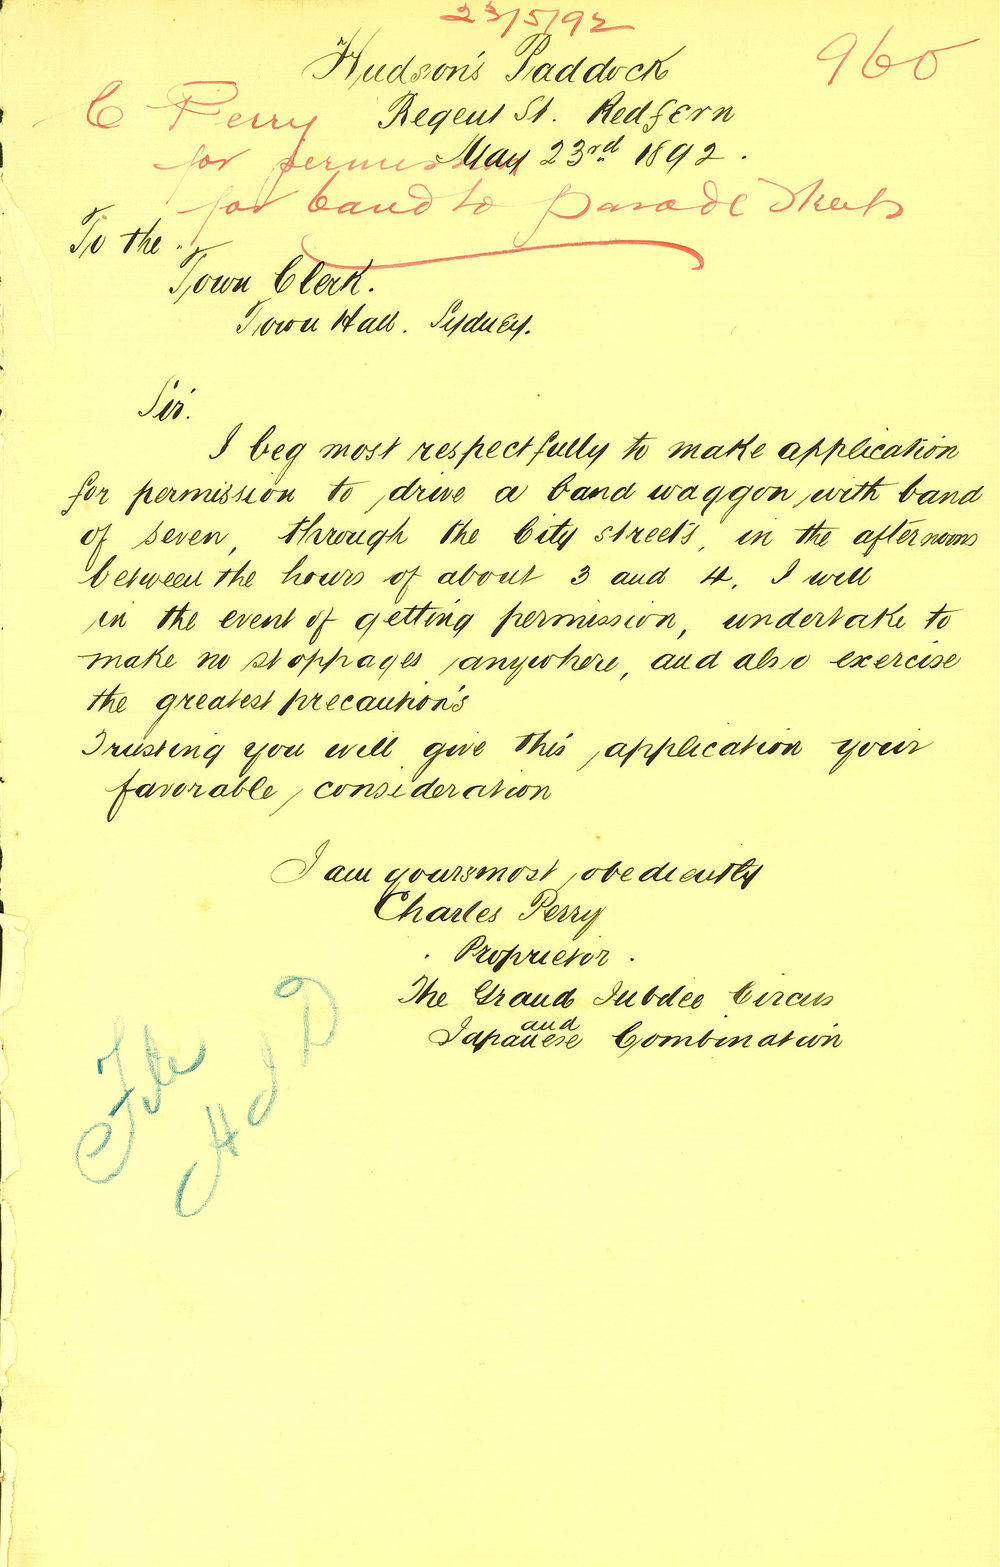 23/5/92
960
Hudson's Paddock
Regent St. Redfern
May 23rd 1892.
C Perry
for permission
for band to parade streets
To the
Town Clerk.
Town Hall. Sydney.
Sir.
I beg most respectfully to make application
for permission to drive a band waggon with band
of seven, through the City streets, in the afternoons
between the hours of about 3 and 4. I will
in the event of getting permission, undertake to
make no stoppages anywhere, and also exercise
the greatest precaution's
Trusting you will give this application your
favorable consideration
I am yours most obediently
Charles Perry
Proprietor.
The Grand Jubilee Circus
and
Japanese Combination
File